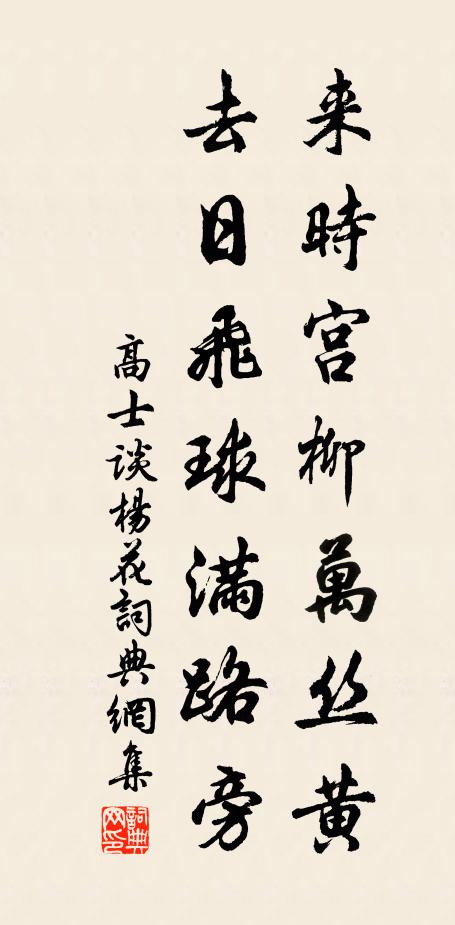 来時宫柳萬丝黄
去日飛球满路旁
高士谈楊花詞典網集
詞典网印